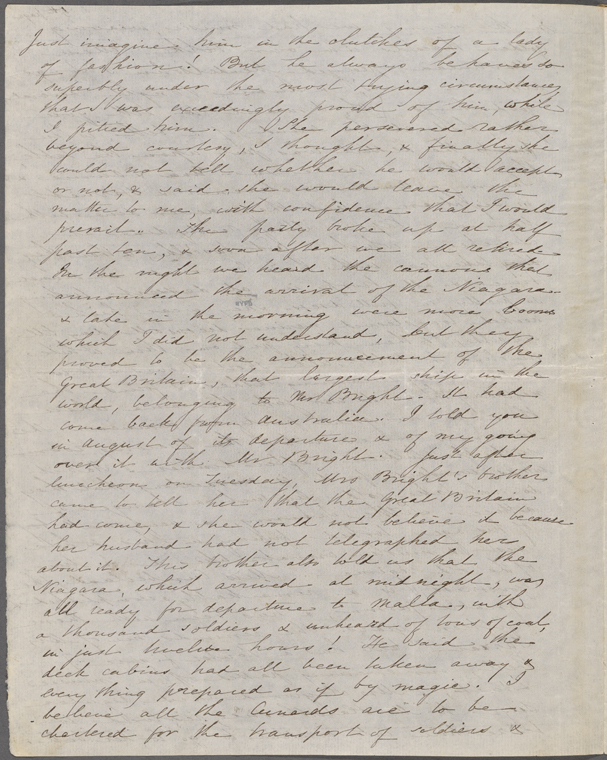 Just imagine him in the clutches of a lady
of fashion! But he always behaves so
superbly under the most trying circumstances
that I was exceedingly proud of him, while
I pitied him. She persevered rather
beyond courtesy, I thought, & finally she
would not tell whether he would accept
or not, & said she would leave the
matter to me, with confidence that I would
prevail. The party broke up at half
past ten, & soon after we all retired.
In the night we heard the cannons that
announced the arrival of the Niagara
& late in the morning were more booms
which I did not understand, but they
proved to be the announcement of the
Great Britain, that largest ship in the
world, belonging to Mr Bright. It had
come back from Australia. I told you
in August of its departure & of my going
over it with Mr Bright. Just after
luncheon on Tuesday, Mrs Bright's brother
came to tell her that the Great Britain
had come, & she would not believe it because
her husband had not telegraphed her
about it. This brother also told us that the
Niagara, which arrived at midnight, was
all ready for departure to Malta, with
a thousand soldiers & unheard of tons of coal,
in just twelve hours! He said the
deck cabins had all been taken away &
every thing prepared as if by magic. I
believe all the Cunards are to be
chartered for the transport of soldiers &